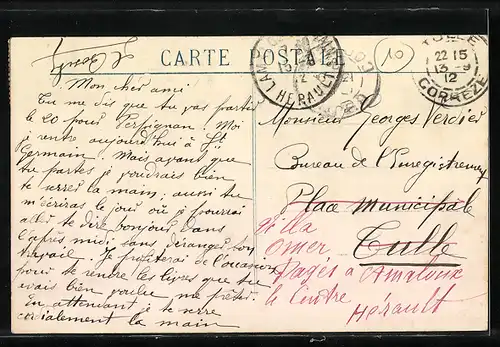 CARTE POSTALE
10
TULLE
22 15
13 - 9
12
CORREZE
LAMALOU
HERAULT
Mon cher ami
Tu me dis que tu vas partir
le 20 pour Perpignan. Moi
je rentre aujourd'hui à St
Germain. Mais avant que
tu partes je voudrais bien
te serrer la main; aussi tu
m'écriras le jour où je pourrai
aller te dire bonjour dans
l'après midi sans déranger ton
travail. Je profiterai de l'occasion
pour te rendre les livres que tu
avais bien voulu me prêter.
En attendant je te serre
cordialement la main
Monsieur Georges Verdier
Bureau de l'Enregistrement
Place Municipale
Tulle
Villa
Omer
Pagès à Amalou
le Centre
Hérault